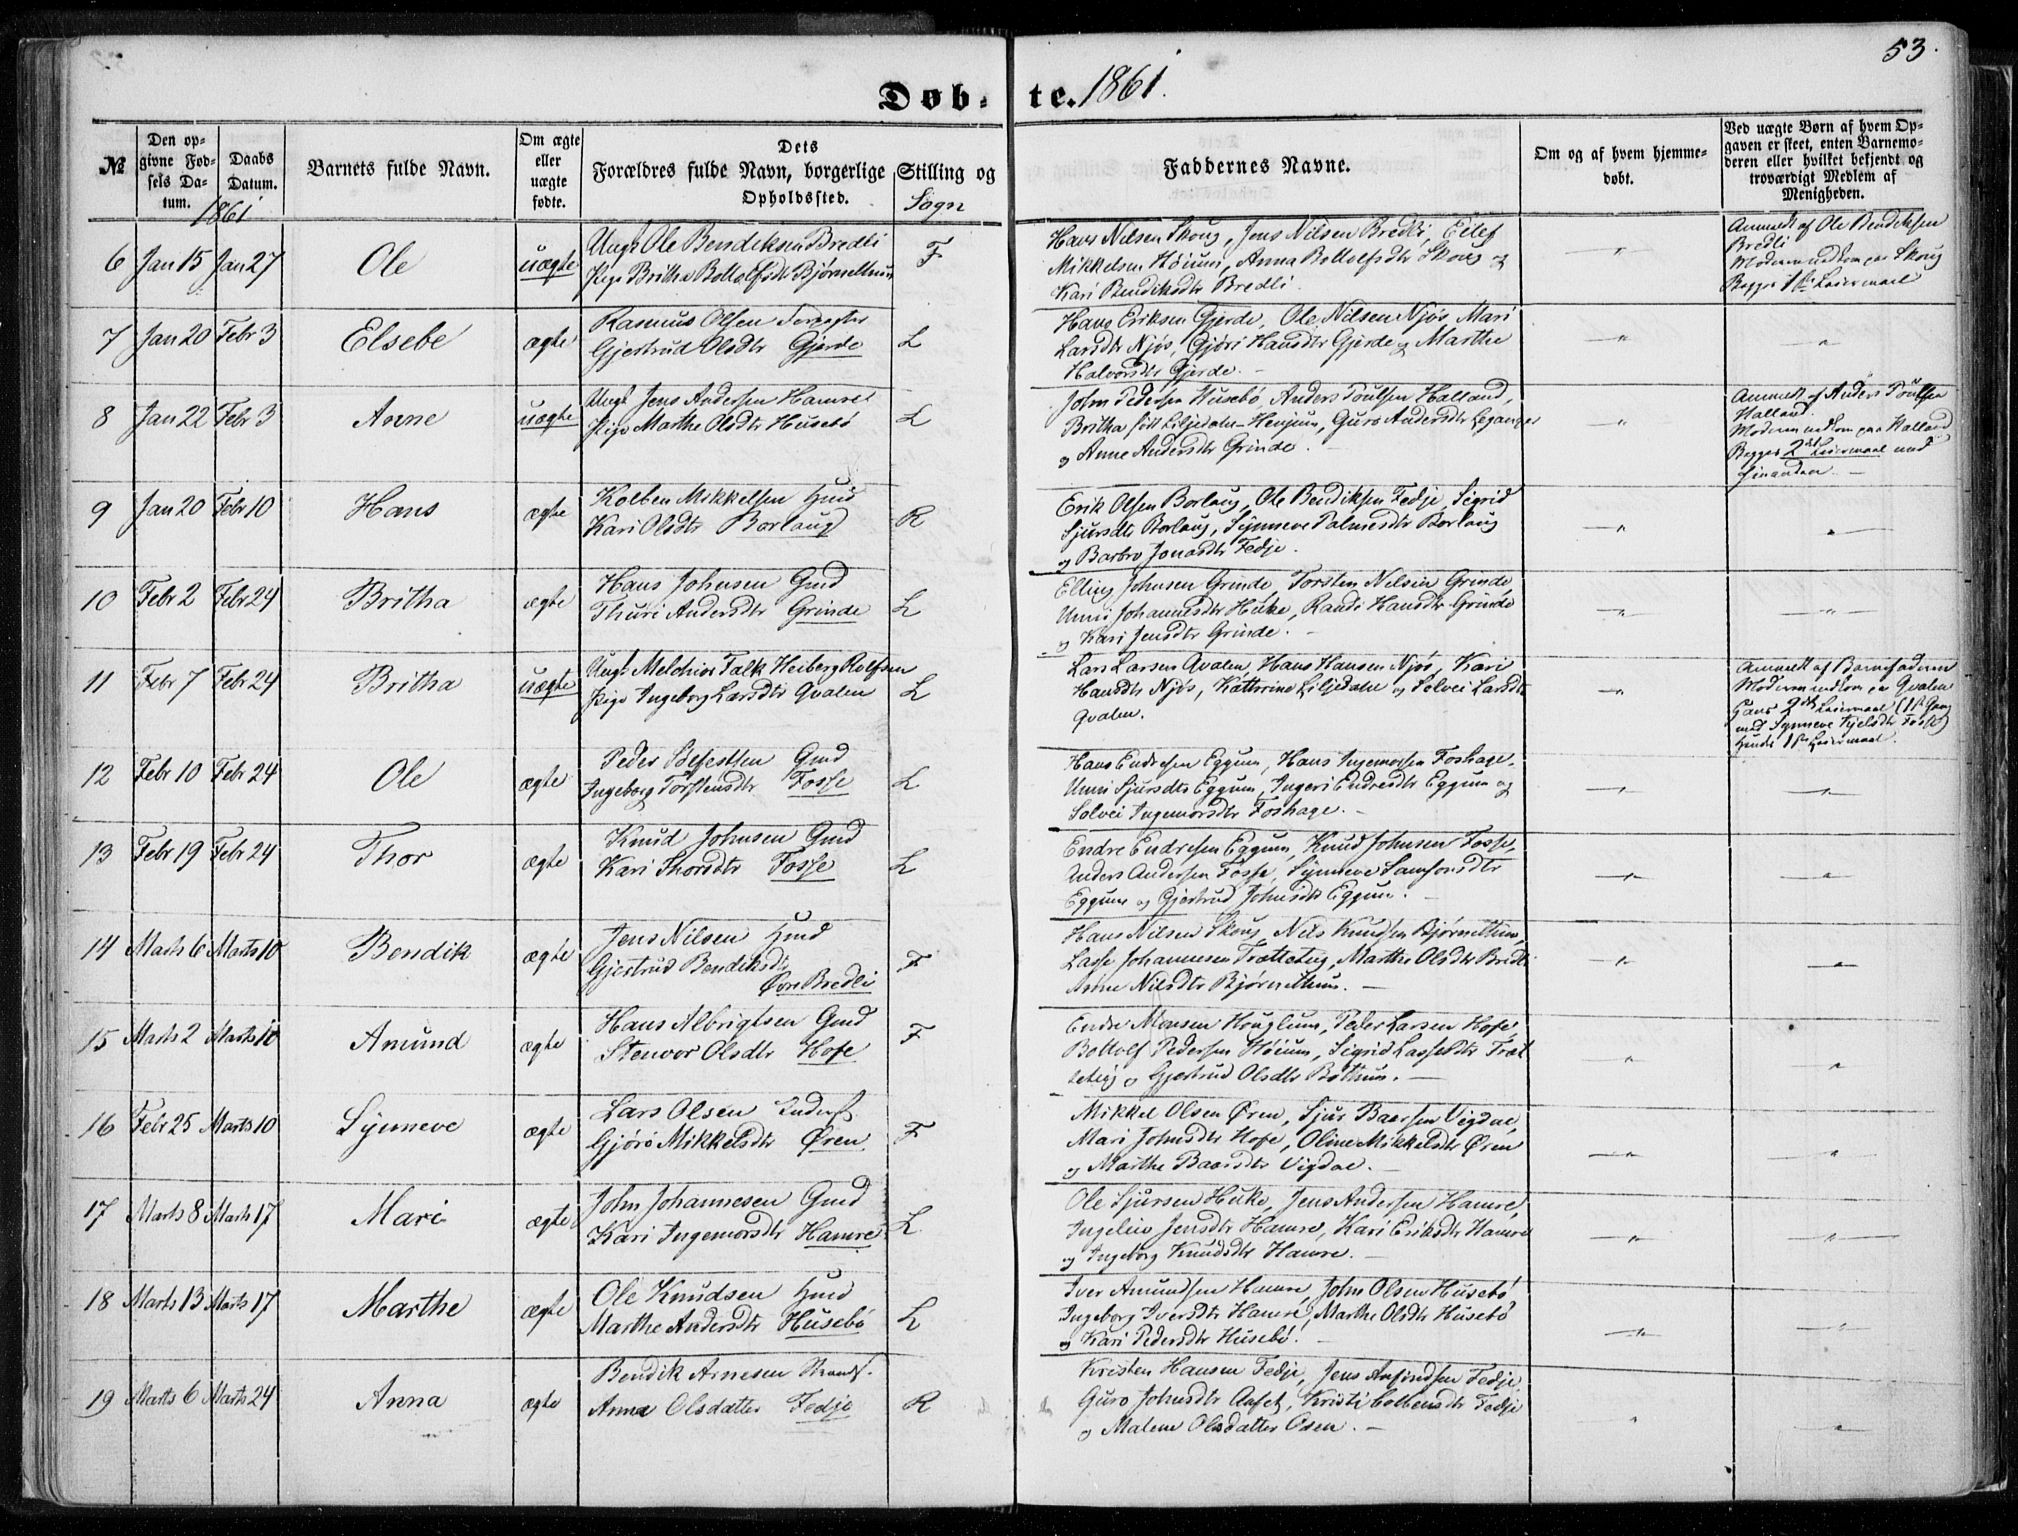 53.
Døb-te. 1861.
№
Den opgivne Fødsels Datum.
Daabs Datum.
1861
Barnets fulde Navn.
Om ægte eller uægte fødte.
Dets
Forældres fulde Navn, borgerlige Stilling og
Opholdssted.
Sogn
Faddernes Navne.
Om og af hvem hjemmedøbt.
Ved uægte Børn af hvem Opgaven er skeet, enten Barnemoderen eller hvilket bekjendt og troværdigt Medlem af Menigheden.
6 Jan 15 Jan 27 Ole uægte
Ungk Ole Bendiksen Bredli
Pige Britha Bottolfsdt Bjørnethun F
Hans Nilsen Skoug, Jens Nilsen Bredli, Eilef
Mikkelsen Høium, Anna Bottolfsdt Skoug og
Kari Bendiksdtr Bredli.
Anmeldt af Ole Bendiksen
Bredli
Moderen paa Skoug
Begges 1ste Leiermaal
7 Jan 20 Febr 3 Elsebe ægte
Rasmus Olsen
Gjertrud Olsdtr Gjerde L
Hans Eriksen Gjerde, Ole Nilsen Njøs Mari
Larsdtr Njøs, Gjøri Hansdtr Gjerde og Marthe
Halvorsdtr Gjerde. -
8 Jan 22 Febr 3 Anne uægte
Ungk Jens Andersen Hamre
Pige Marthe Olsdtr Husebö L
John Pedersen Husebö Anders Poulsen Halland,
Britha født Liljedalen-Henjum, Guro Andersdtr Leganger
og Anne Andersdtr Grinde.
Anmeldt af Anders Poulsen
Halland.
Moderen paa Halland
Begges 2det Leiermaal med
hinanden -
9 Jan 20 Febr 10 Hans ægte
Kolben Mikkelsen Hmd
Kari Olsdtr Borlaug R
Erik Olsen Borlaug, Ole Bendiksen Fedje, Sigrid
Sjursdtr Borlaug, Synneve Palmesdtr Borlaug
og Barbro Jonasdtr Fedje.
10 Febr 2 Febr 24 Britha ægte
Hans Johnsen Gmd
Thuri Andersdtr Grinde L
Elling Johnsen Grinde, Torsten Nelsen Grinde,
Unni Johannesdtr Huke, Randi Hansdtr Grinde
og Kari Jensdtr Grinde. -
11 Febr 7 Febr 24 Britha uægte
Ungk Melchior Falk Heiberg Rolfsen
Pige Ingeborg Larsdtr Qvalen L
Lars Larsen Qvalen, Hans Hansen Njøs, Kari
Hansdtr Njøs, Kathrine Liljedalen og Solvei Larsdtr
Qvalen.
Anmeldt af Barnefaderen
Moderen paa Qvalen
Hans 2det Leiermaal (1ste Gang
med Synneve Kjelsdtr Fosse)
Hendes 1ste Leiermaal.
12 Febr 10 Febr 24 Ole ægte
Peder Sjfestsen Gmd
Ingeborg Torstensdtr Fosse L
Hans Endresen Eggum, Hans Ingemorsen Foshage,
Unni Sjursdtr Eggum, Ingeri Endresdtr Eggum og
Solvei Ingemorsdtr Foshage. -
13 Febr 19 Febr 24 Thor ægte
Knud Johnsen Gmd
Kari Thorsdtr Fosse L
Endre Endresen Eggum, Knud Johnsen Fosse,
Anders Andersen Fosse, Synneve Samsonsdtr
Eggum og Gjertrud Johnsdtr Eggum. -
14 Marts 6 Marts 10 Bendik ægte
Jens Nilsen Hmd
Gjertrud Bendiksdtr
Øvre Bredli F
Hans Nilsen Skoug Nels Knudsen Bjørnethun,
Lasse Johannesen Trætteteig, Marthe Olsdtr Bredli
Anne Nilsdtr Bjørnethun. -
15 Marts 2 Marts 10 Amund ægte
Hans Albrigtsen Gmd
Stenvor Olsdtr Hofe F
Endre Monsen Houglum, Peder Larsen Hofe,
Bottolf Pedersen Høium, Sigrid Lassesdtr Træt
teteig og Gjertrud Olsdtr Bothun. -
16 Febr 25 Marts 10 Synneve ægte
Lars Olsen Inderst
Gjøro Mikkelsdtr Øren F
Mikkel Olsen Øren, Sjur Baarsen Vigdal,
Mari Johnsdtr Hofe, Oline Mikkelsdtr Øren
og Marthe Baarsdtr Vigdal. -
17 Marts 8 Marts 17 Mari ægte
John Johannesen Gmd
Kari Ingemorsdtr Hamre L
Ole Sjursen Huke, Jens Andersen Hamre,
Ingeleiv Jensdtr Hamre, Kari Eriksdtr Hamre
og Ingeborg Knudsdtr Hamre. -
18 Marts 13 Marts 17 Marthe ægte
Ole Knudsen Hmd
Marthe Andersdtr Husebö L
Iver Amundsen Hamre, John Olsen Husebö
Ingeborg Iversdtr Hamre, Marthe Olsdtr Husebö
og Kari Pedersdtr Husebö. -
19 Marts 6 Marts 24 Anna ægte
Bendik Arnesen Strands.
Anna Olsdatter Fedje R
Kristen Hansen Fedje, Jens Anfindsen Fedje
Guro Johnsdtr Aafet, Kristi Colbensdtr Fedje
og Malene Olsdatter Osen. -